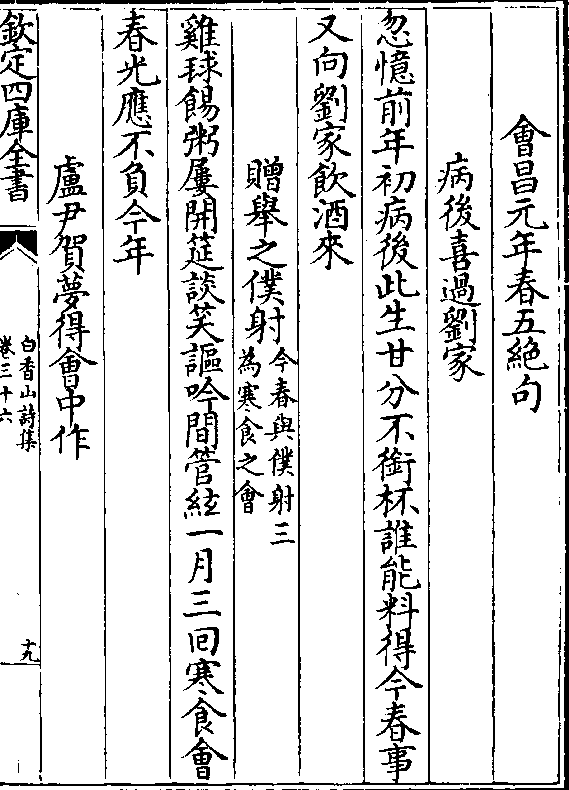 會昌元年春五絕句
病後喜過劉家
忽憶前年初病後此生甘分不銜杯誰能料得今春事
又向劉家飲酒來
贈舉之僕射今春與僕射三為寒食之會
雞球餳粥屢開筵談笑謳吟間管絃一月三回寒食會
春光應不負今年
盧尹賀夢得會中作
欽定四庫全書
白香山詩集
卷三十六
十九